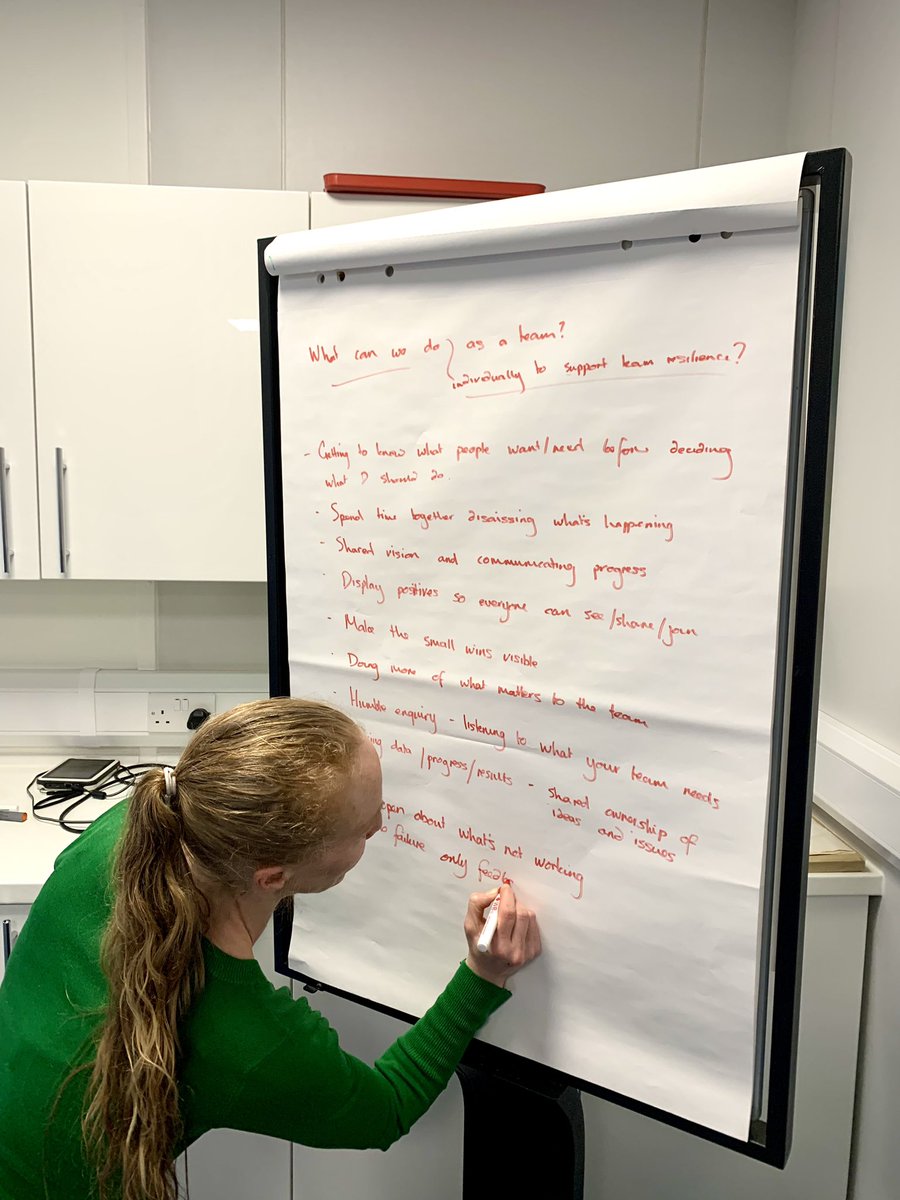 What can we do as a team?
individually to support team resilience?
- Getting to know what people want/need before deciding
what I should do.
- Spend time together discussing what's happening
- Shared vision and communicating progress
- Display positives so everyone can see/share/join
- Make the small wins visible
- Doing more of what matters to the team
- Humble enquiry - listening to what your team needs
data/progress/results - shared ownership of
ideas and issues
open about what's not working
failure only feedb